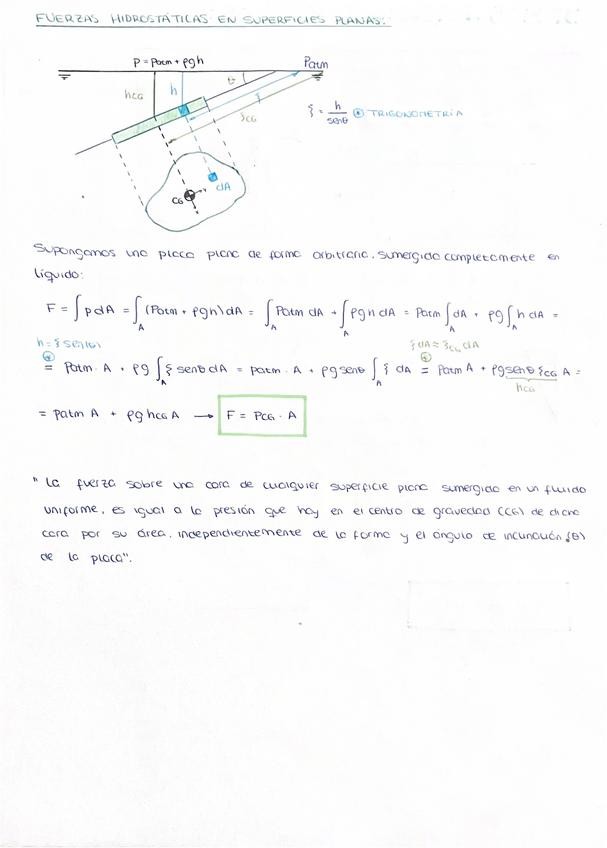 FUERZAS HIDROSTÁTICAS EN SUPERFICIES PLANAS.
P = Patm + ρgh
Patm
hCG
h
θ
ξ
ξCG
ξ = h / senθ ⊛ TRIGONOMETRÍA
dA
CG
Supongamos una placa plana de forma arbitraria, sumergida completamente en
líquido:
F = ∫ p dA = ∫A (Patm + ρgh) dA = ∫A Patm dA + ∫A ρgh dA = Patm ∫A dA + ρg ∫A h dA =
h = ξ sen(θ)
ξ dA ≈ ξCG dA
= Patm · A + ρg ∫A ξ senθ dA = patm · A + ρg senθ ∫A ξ dA = Patm A + ρg senθ ξCG A =
hCG
= patm A + ρg hCG A → F = PCG · A
"La fuerza sobre una cara de cualquier superficie plana sumergida en un fluido
uniforme, es igual a la presión que hay en el centro de gravedad (CG) de dicha
cara por su área, independientemente de la forma y el ángulo de inclinación (θ)
de la placa".